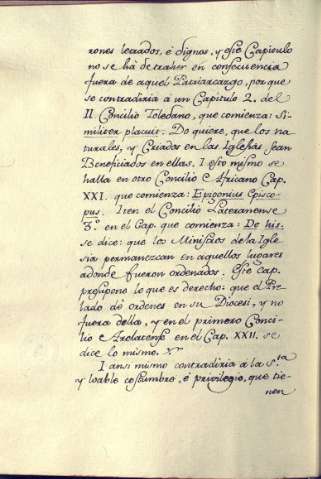 rones letrados, é dignos, y este Capitulo
no se há de traher en consecuencia
fuera de aquel Patriarcazgo, porque
se contradiria á un Capitulo 2. del
II. Concilio Toledano, que comienza: Si-
militer placuit. Do quiere, que los na-
turales, y Criados en las Iglesias sean
Beneficiados en ellas. I esto mismo se
halla en otro Concilio é Africano Cap.
XXI. que comienza: Epigonius Episco-
pus. Iten el Concilio Lateranense
3.º en el Cap. que comienza: De his.
se dice: que los Ministros de la Igle-
sia permanezcan en aquellos lugares
adonde fueron ordenados. Este cap.
presupone lo que es derecho: que el Pre-
lado dé ordenes en su Diocesi, y no
fuera della, y en el primero Conci-
lio é Arelatense en el Cap. XXII. se
dice lo mismo.
I ansi mismo contradiria á la S.ta
y loable costumbre, é privilegio, que tie-
nen